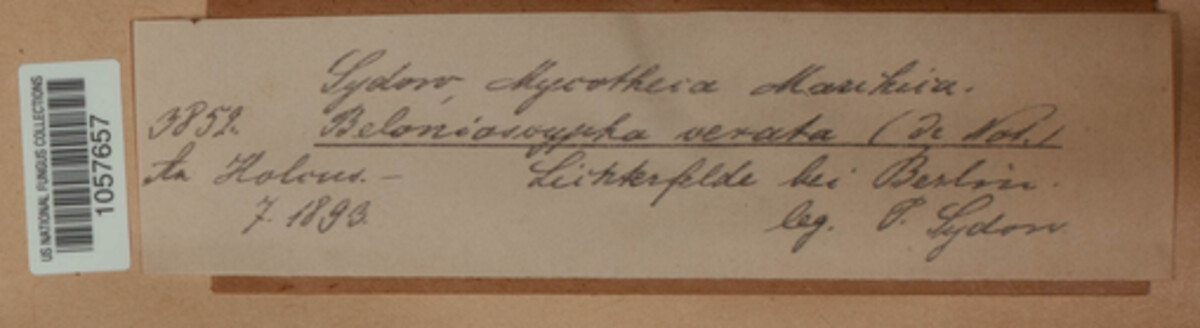 US NATIONAL FUNGUS COLLECTIONS
1057657
Sydow, Mycotheca Marchica.
3852. Belonioscypha vexata (De Not.)
An Holcus. – Lichterfelde bei Berlin.
7. 1893. leg. P. Sydow